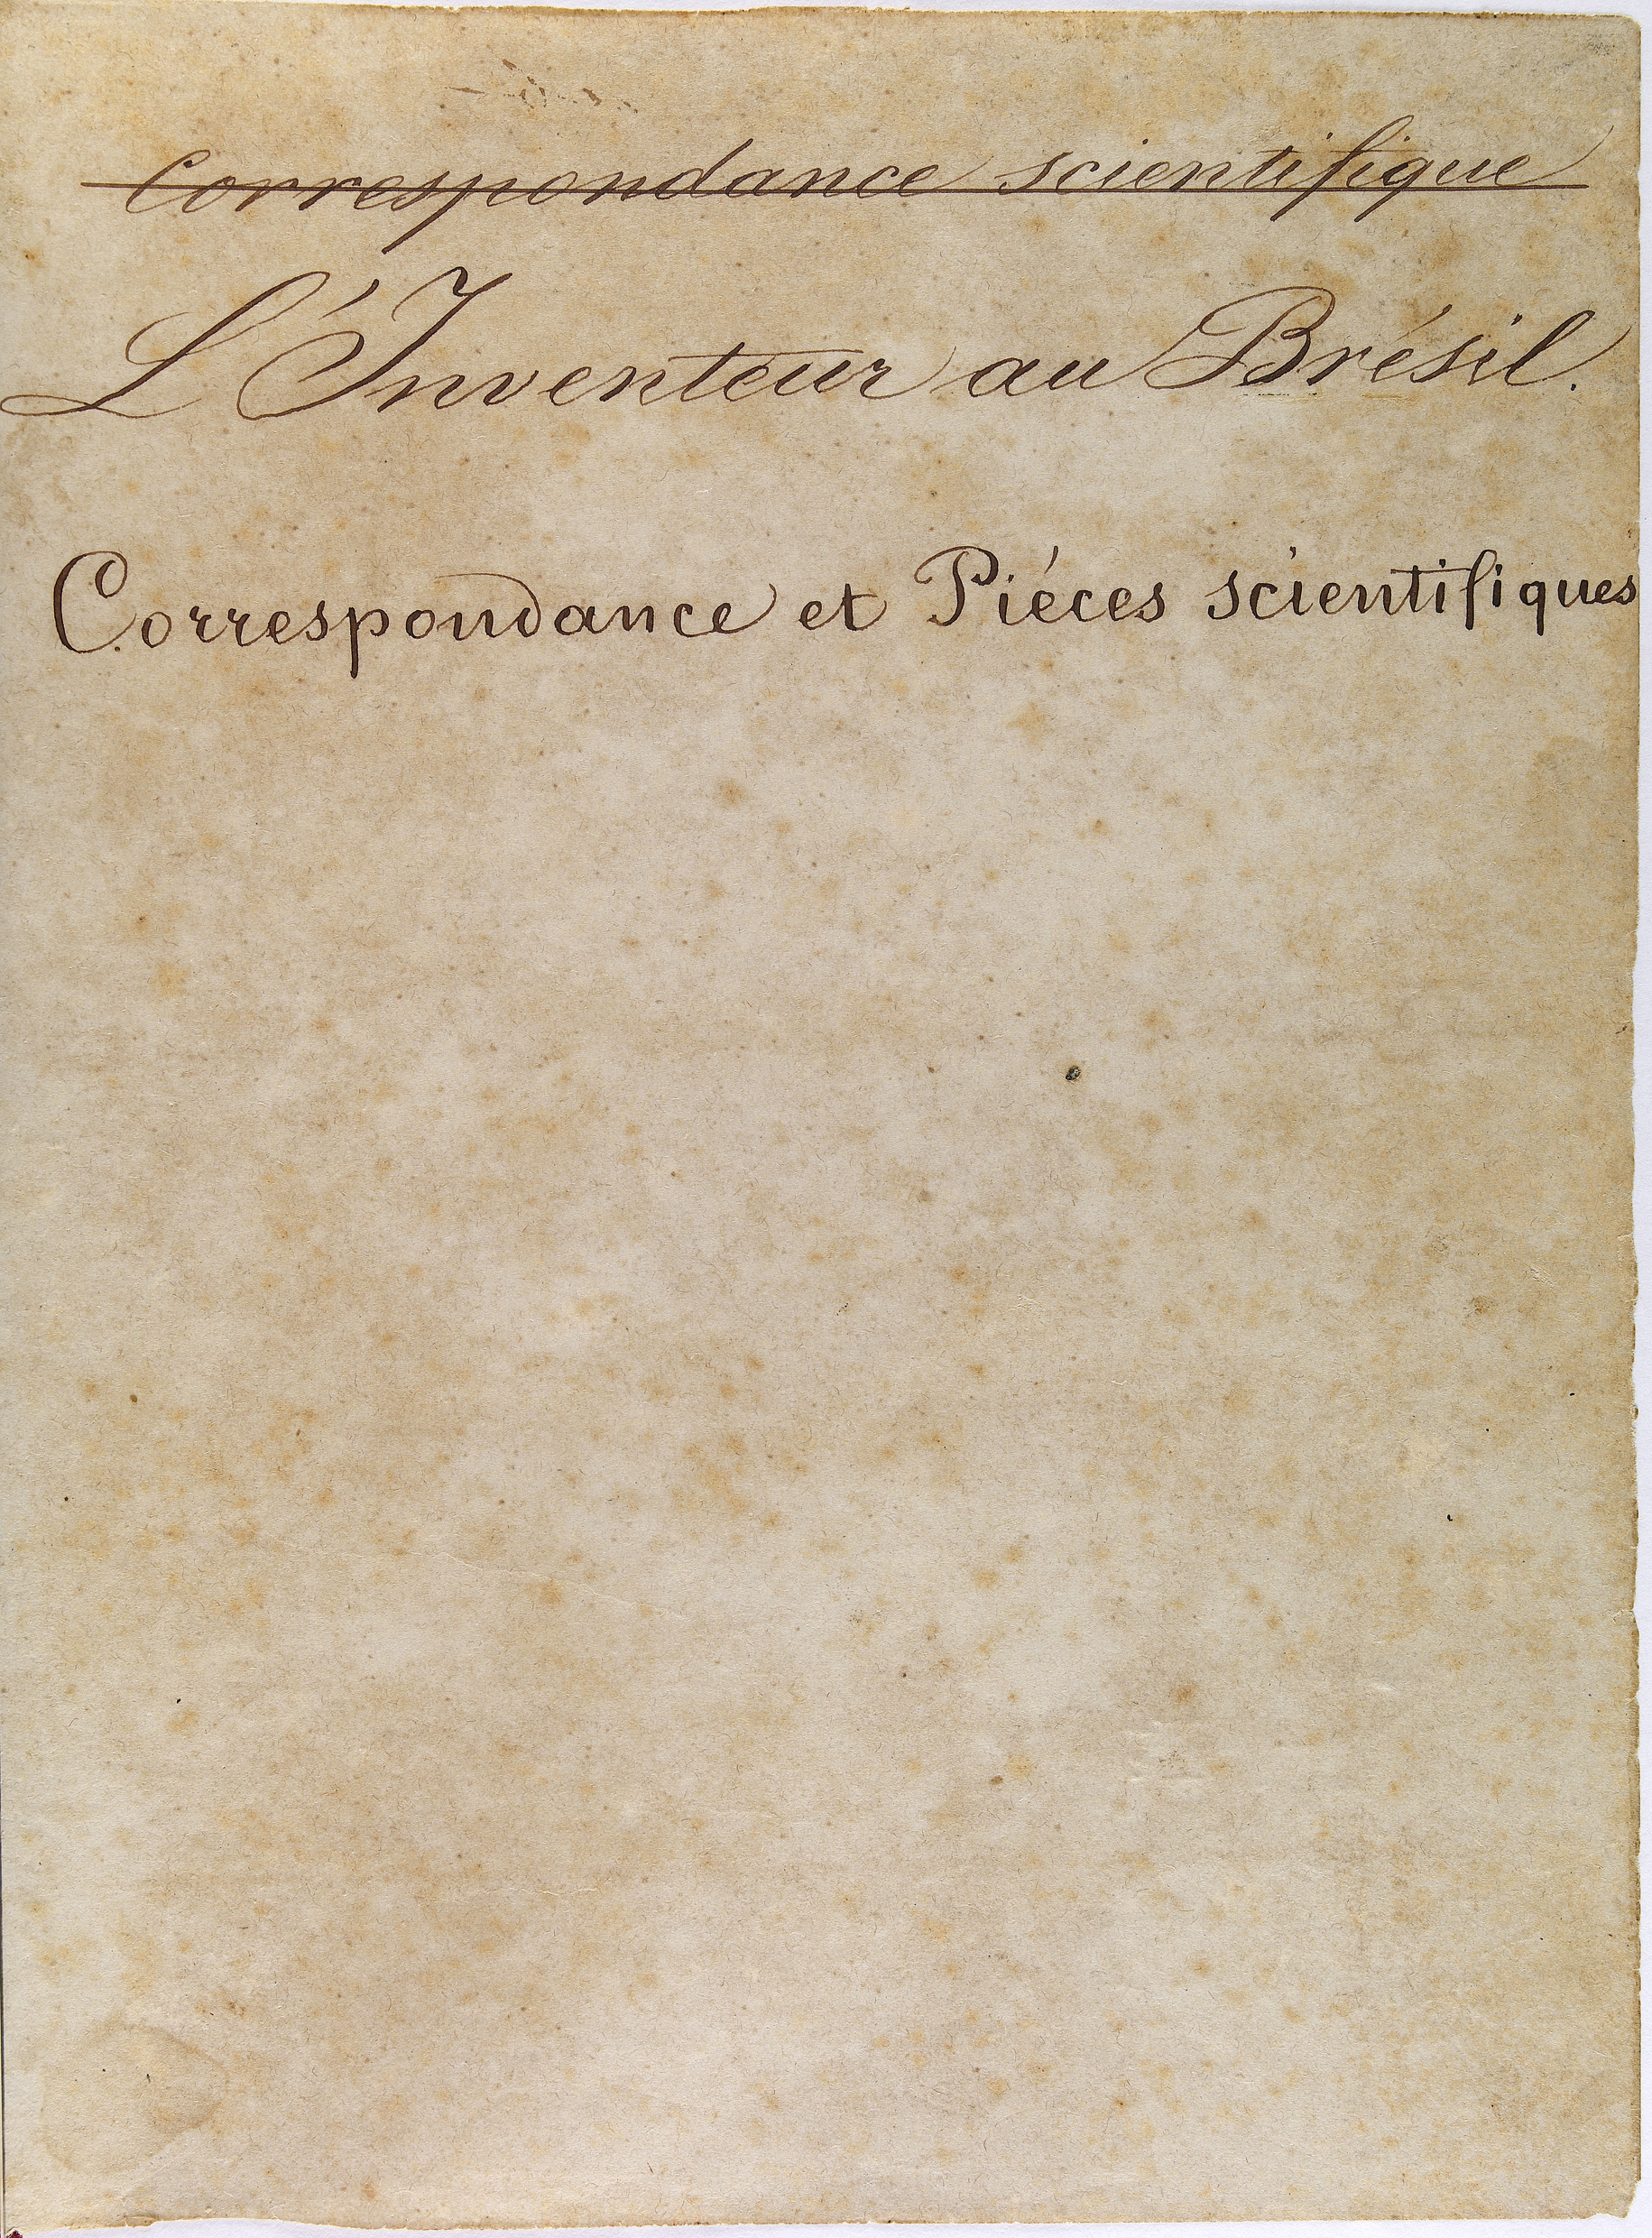 Correspondance scientifique
L'Inventeur au Brésil.
Correspondance et Piéces scientifiques